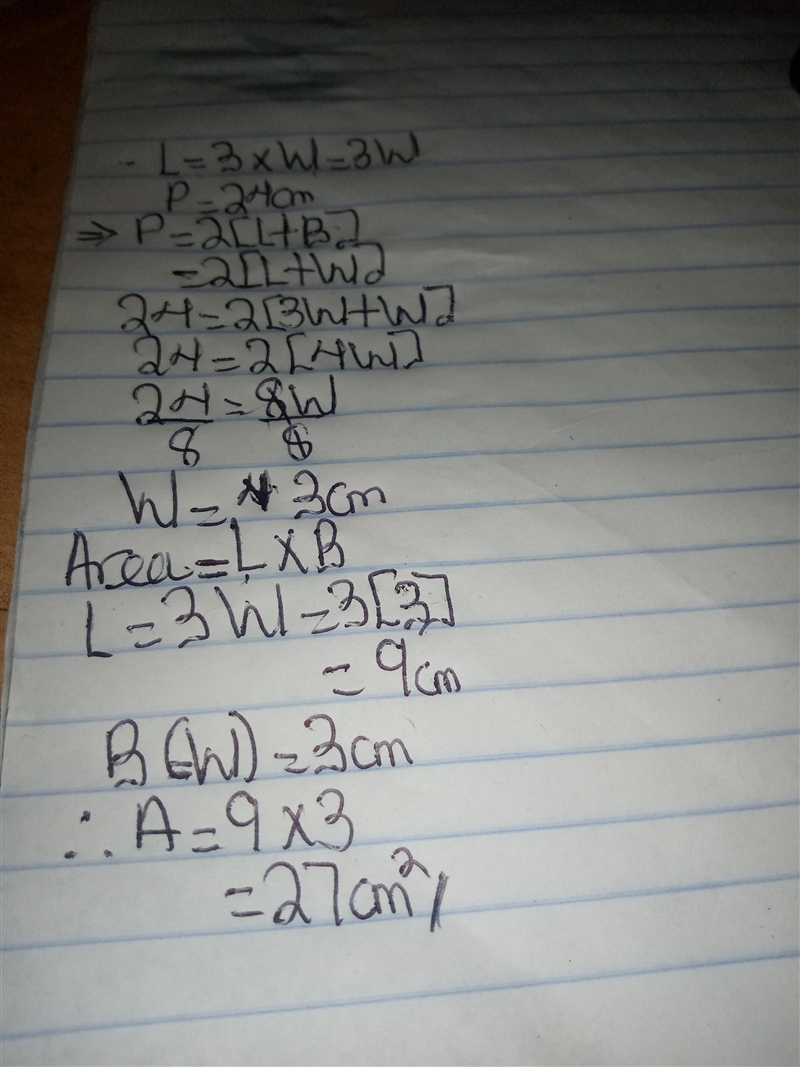 - L = 3 × W = 3W
P = 24cm
⇒ P = 2[L+B]
= 2[L+W]
24 = 2[3W+W]
24 = 2[4W]
24/8 = 8W/8
W = 3cm
Area = L × B
L = 3W = 3[3]
= 9cm
B(=W) = 3cm
∴ A = 9 × 3
= 27cm²/